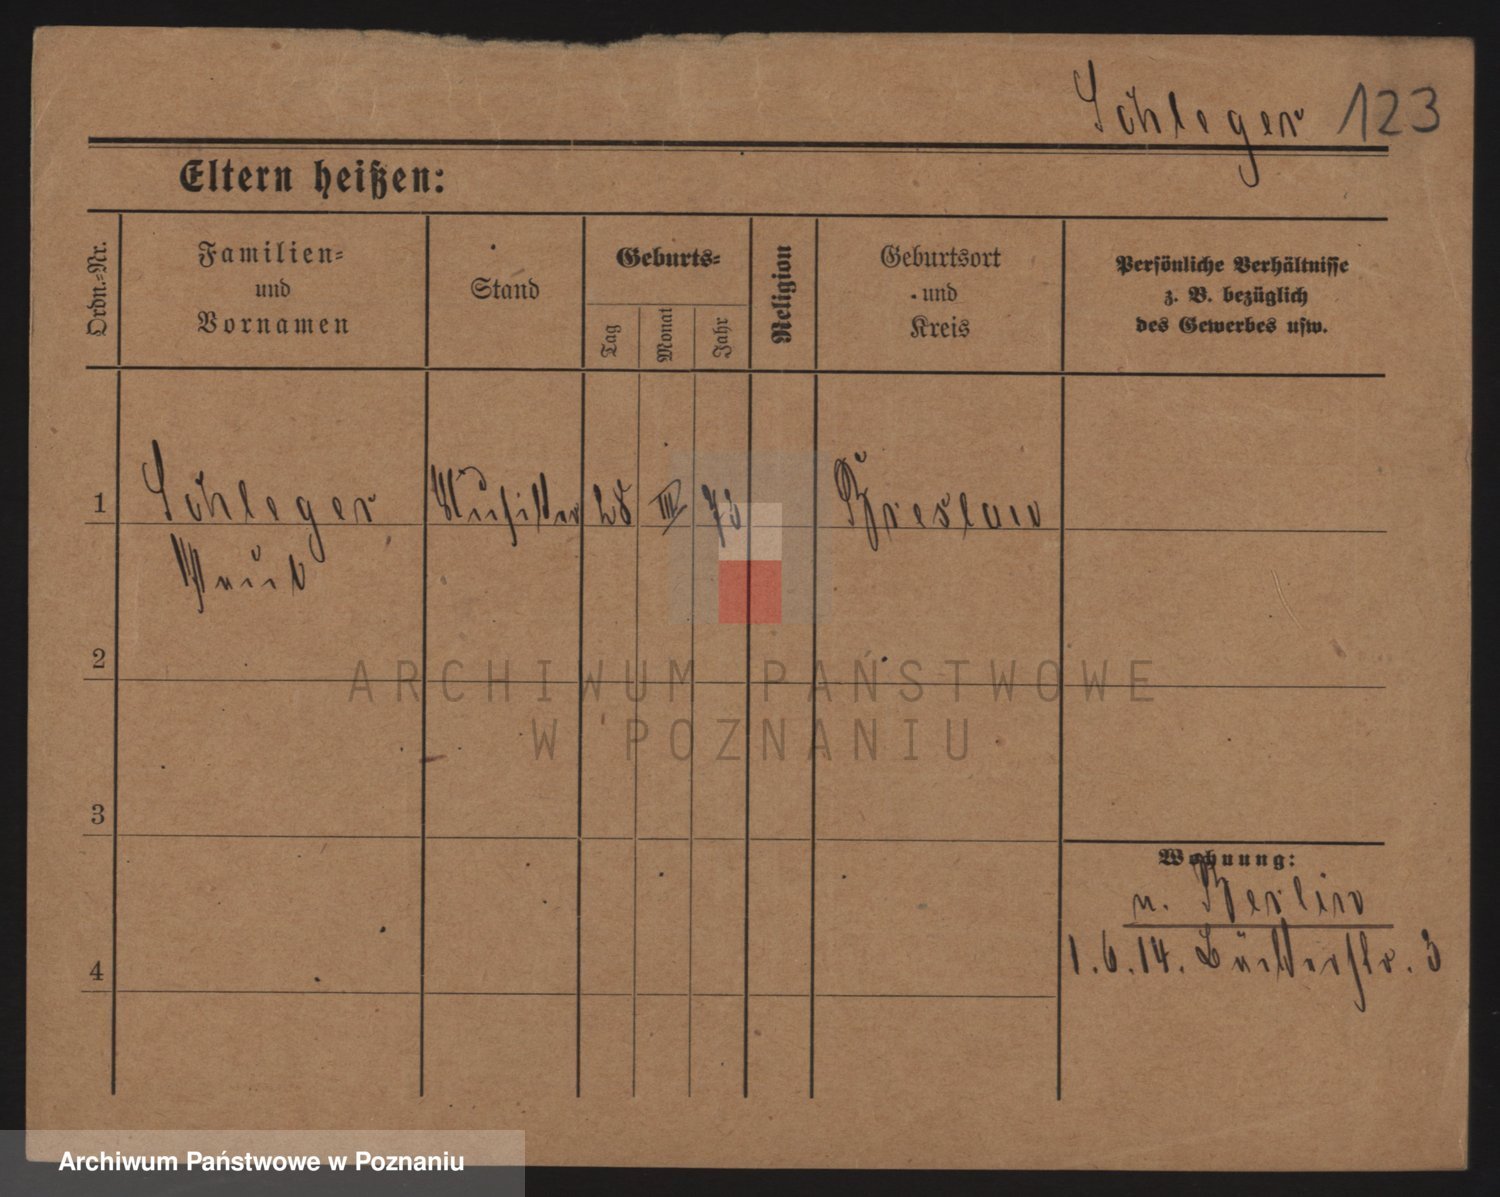 Schleger 123
Eltern heißen:
Ordn.=Nr.
Familien=
und
Vornamen
Stand
Geburts=
Tag
Monat
Jahr
Religion
Geburtsort
und
Kreis
Persönliche Verhältnisse
z. B. bezüglich
des Gewerbes usw.
1 Schleger 28 III 73 Breslau
2
ARCHIWUM PAŃSTWOWE
W POZNANIU
3
Wohnung:
n. Berlin
1.6.14. 3
4
Archiwum Państwowe w Poznaniu